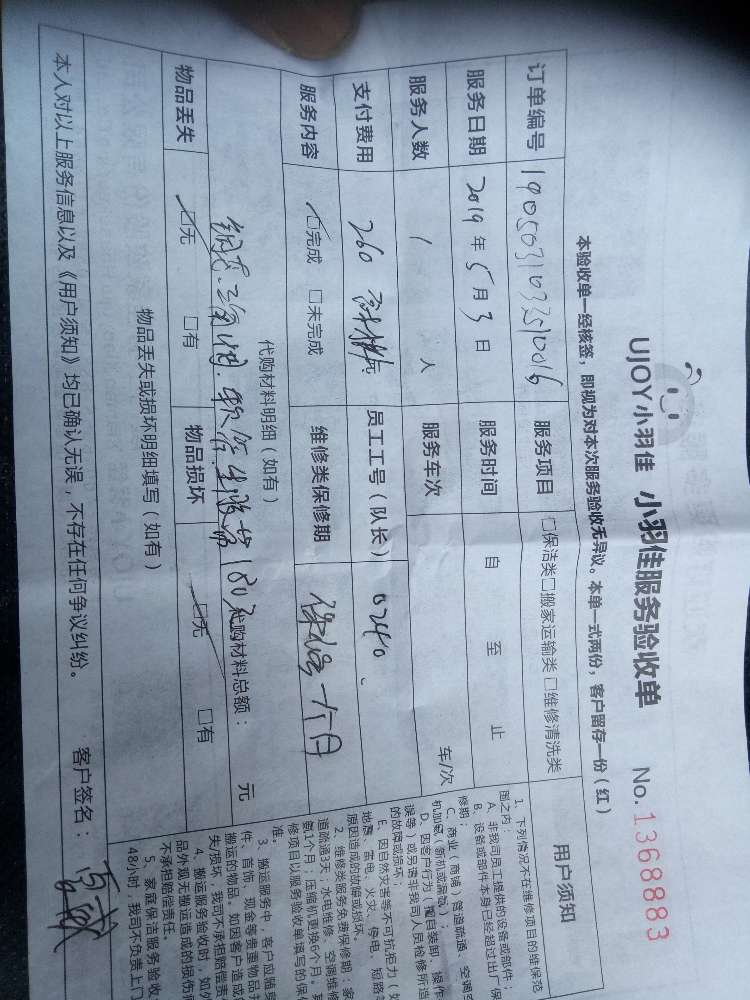 UJOY小羽佳 小羽佳服务验收单 No.1368883
本验收单一经核签，即视为对本次服务验收无异议。本单一式两份，客户留存一份（红）
订单编号 190503103510016 服务项目 □保洁类□搬家运输类□维修清洗类
服务日期 2019年5月3日 服务时间 自 至 止
服务人数 1 人 服务车次 车/次
支付费用 260 元 员工工号（队长） 0240
服务内容 □完成 □未完成 维修类保修期 保修一个月
代购材料明细（如有）
软管 180元 代购材料总额： 元
物品丢失 □无 □有 物品损坏 □无 □有
物品丢失或损坏明细填写（如有）
本人对以上服务信息以及《用户须知》均已确认无误，不存在任何争议纠纷。 客户签名：
用户须知
1、下列情况不在维修项目的维保范
围之内：
A、非我司员工提供的设备或部件；
B、设备或部件本身已经超过出厂保
修期；
C、商业（商铺）管道疏通、空调空
机加氟（新机或漏氟）；
D、因客户行为（擅自装卸、操作
误等）或另请非我司人员检修所造
的故障或损坏；
E、因自然灾害等不可抗拒力（如
地震、雷电、火灾、停电、短路
原因造成的故障或损坏。
2、维修类服务免费保修期：家
道疏通3天；水电维修、空调维修
氨1个月；压缩机更换6个月。其
修项目以服务验收单填写的保修
准。
3、搬运服务中，客户应随身
件、首饰、现金等贵重物品
搬运的物品。如因客户造成
失/损坏，我司不承担赔偿责
4、搬运服务验收时，如外
品外观无搬运造成的损伤
不承担赔偿责任。
5、家庭保洁服务验收
48小时，我司不负责上门